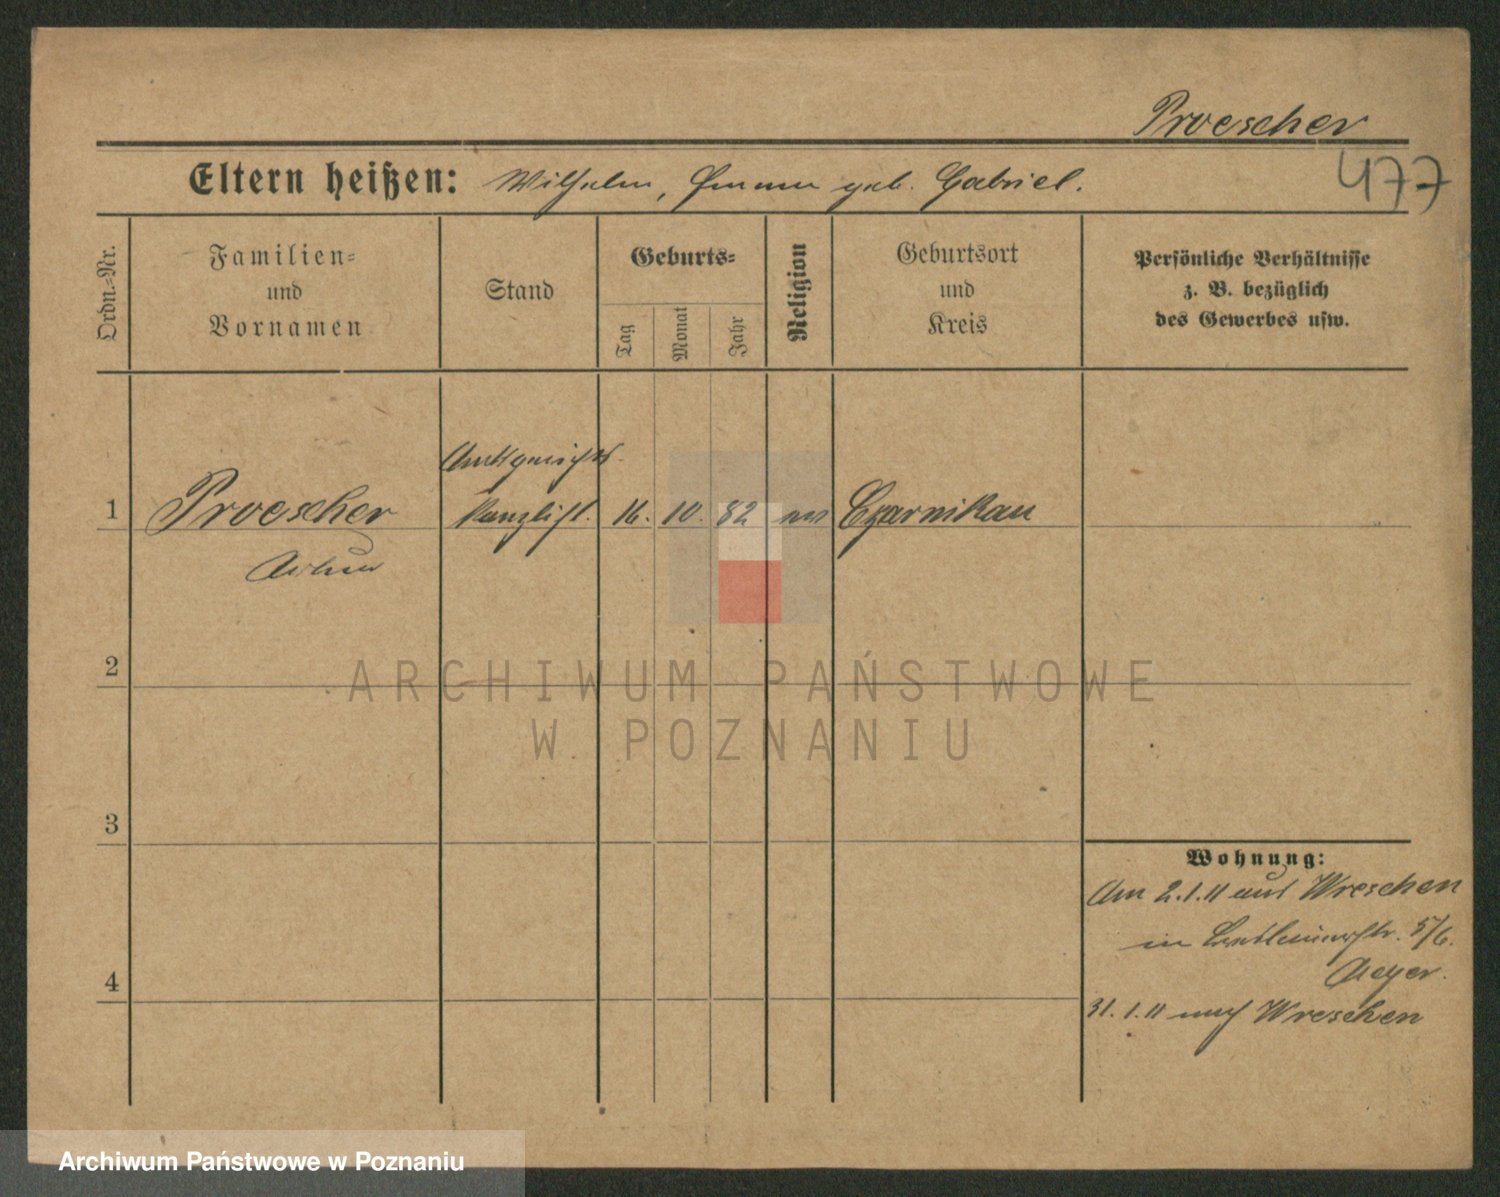 Proescher
477
Eltern heißen: Wilhelm, Emma geb. Gabriel.
Ordn.-Nr.
Familien-
und
Vornamen
Stand
Geburts-
Tag
Monat
Jahr
Religion
Geburtsort
und
Kreis
Persönliche Verhältnisse
z. B. bezüglich
des Gewerbes usw.
Amtsgerichts
1 Proescher Kanzlist. 16. 10. 82 ev Czarnikau
Arthur
2
ARCHIWUM PAŃSTWOWE
W POZNANIU
3
Wohnung:
Am 2.1.11 aus Wreschen
in 5/6.
4
31.1.11 nach Wreschen
Archiwum Państwowe w Poznaniu